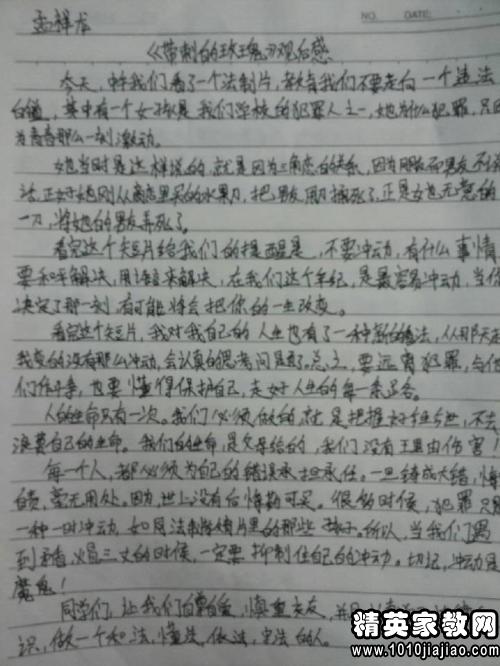 孟祥龙
NO. DATE:
《带刺的玫瑰》观后感
今天,中午我们看了一个法制片,教育我们不要走向一个违法
的道,其中有一个女孩是我们学校的犯罪人之一,她为什么犯罪,只因
为青春那么一刻激动。
她当时是这样说的,就是因为三角恋的关系,因为朋友而男友不
法,正好她刚从商店里买的水果刀,把男友用刀捅死了,正是女孩无意的
一刀,将她的男友弄死了。
看完这个短片给我们的提醒是,不要冲动,有什么事情
要和平解决,用语言来解决,在我们这个年纪,是最容易冲动,当你
决定了那一刻,有可能将会把你的一生改变。
看完这个短片,我对我自己的人生也有了一种新的看法,从那天起
我真的没有那么冲动,会认真的思考问题了。总之,要远离犯罪,与他
们作斗争,也要懂得保护自己,走好人生的每一条路。
人的生命只有一次。我们必须做的就是把握好今世,不会
浪费自己的生命。我们的生命,是父母给的,我们没有理由伤害!
每一个人,都必须为自己的错误承担责任。一旦铸成大错,悔
自责,毫无用处。因为,世上没有后悔药可买。很多时候,犯罪只
一种一时冲动,如同法制短片里的那些孩子。所以,当我们遇
到矛盾,火冒三丈的时候,一定要抑制住自己的冲动。切记,冲动是
魔鬼!
同学们,让我们自尊自爱,慎重交友,并
识,做一个知法,懂法,依法,守法的人。
精英家教网
www.1010jiajiao.com